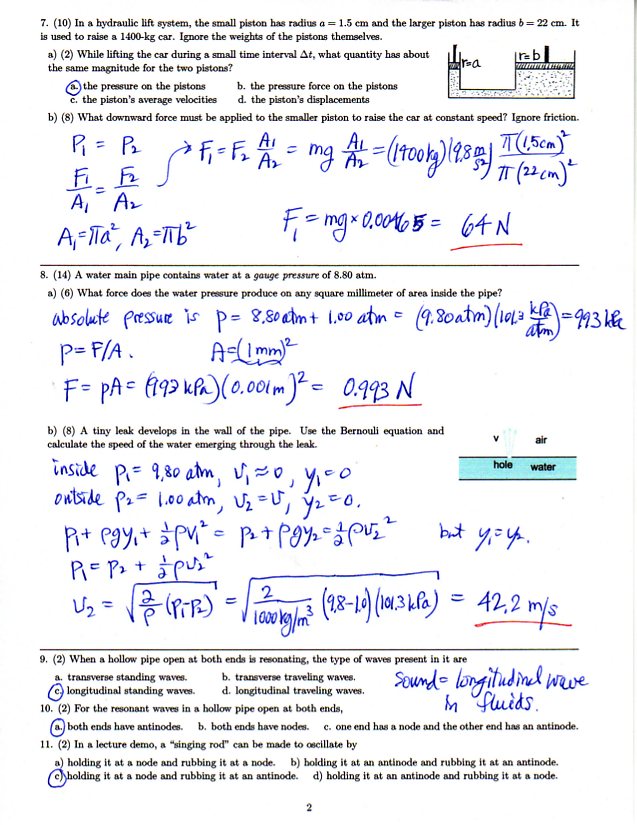 7. (10) In a hydraulic lift system, the small piston has radius a = 1.5 cm and the larger piston has radius b = 22 cm. It
is used to raise a 1400-kg car. Ignore the weights of the pistons themselves.
a) (2) While lifting the car during a small time interval Δt, what quantity has about
the same magnitude for the two pistons?
r=a r=b
a. the pressure on the pistons b. the pressure force on the pistons
c. the piston's average velocities d. the piston's displacements
b) (8) What downward force must be applied to the smaller piston to raise the car at constant speed? Ignore friction.
P₁ = P₂
F₁/A₁ = F₂/A₂
A₁=πa², A₂=πb²
F₁ = F₂ A₁/A₂ = mg A₁/A₂ = (1400kg)(9.8 m/s²) π(1.5cm)²/π(22cm)²
F₁ = mg × 0.00465 = 64 N
8. (14) A water main pipe contains water at a gauge pressure of 8.80 atm.
a) (6) What force does the water pressure produce on any square millimeter of area inside the pipe?
absolute pressure is p = 8.80atm + 1.00 atm = (9.80atm)(101.3 kPa/atm) = 993 kPa
p=F/A. A=(1mm)²
F = pA = (993 kPa)(0.001m)² = 0.993 N
b) (8) A tiny leak develops in the wall of the pipe. Use the Bernouli equation and
calculate the speed of the water emerging through the leak.
v air
hole water
inside p₁ = 9.80 atm, v₁≈0, y₁=0
outside p₂ = 1.00 atm, v₂=v, y₂=0.
p₁ + ρgy₁ + ½ρv₁² = p₂ + ρgy₂ = ½ρv₂² but y₁=y₂.
p₁ = p₂ + ½ρv₂²
v₂ = √(2/ρ (p₁-p₂)) = √(2/1000kg/m³ (9.8-1.0)(101.3kPa)) = 42.2 m/s
9. (2) When a hollow pipe open at both ends is resonating, the type of waves present in it are
a. transverse standing waves. b. transverse traveling waves.
c. longitudinal standing waves. d. longitudinal traveling waves.
sound = longitudinal wave
in fluids.
10. (2) For the resonant waves in a hollow pipe open at both ends,
a. both ends have antinodes. b. both ends have nodes. c. one end has a node and the other end has an antinode.
11. (2) In a lecture demo, a "singing rod" can be made to oscillate by
a) holding it at a node and rubbing it at a node. b) holding it at an antinode and rubbing it at an antinode.
c) holding it at a node and rubbing it at an antinode. d) holding it at an antinode and rubbing it at a node.
2